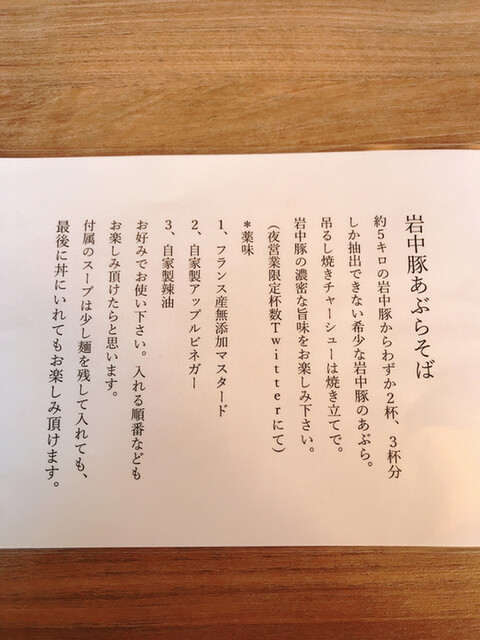 岩中豚あぶらそば
約5キロの岩中豚からわずか2杯、3杯分
しか抽出できない希少な岩中豚のあぶら。
吊るし焼きチャーシューは焼き立てで。
岩中豚の濃密な旨味をお楽しみ下さい。
(夜営業限定杯数Twitterにて)
*薬味
1、フランス産無添加マスタード
2、自家製アップルビネガー
3、自家製辣油
お好みでお使い下さい。入れる順番なども
お楽しみ頂けたらと思います。
付属のスープは少し麺を残して入れても、
最後に丼にいれてもお楽しみ頂けます。